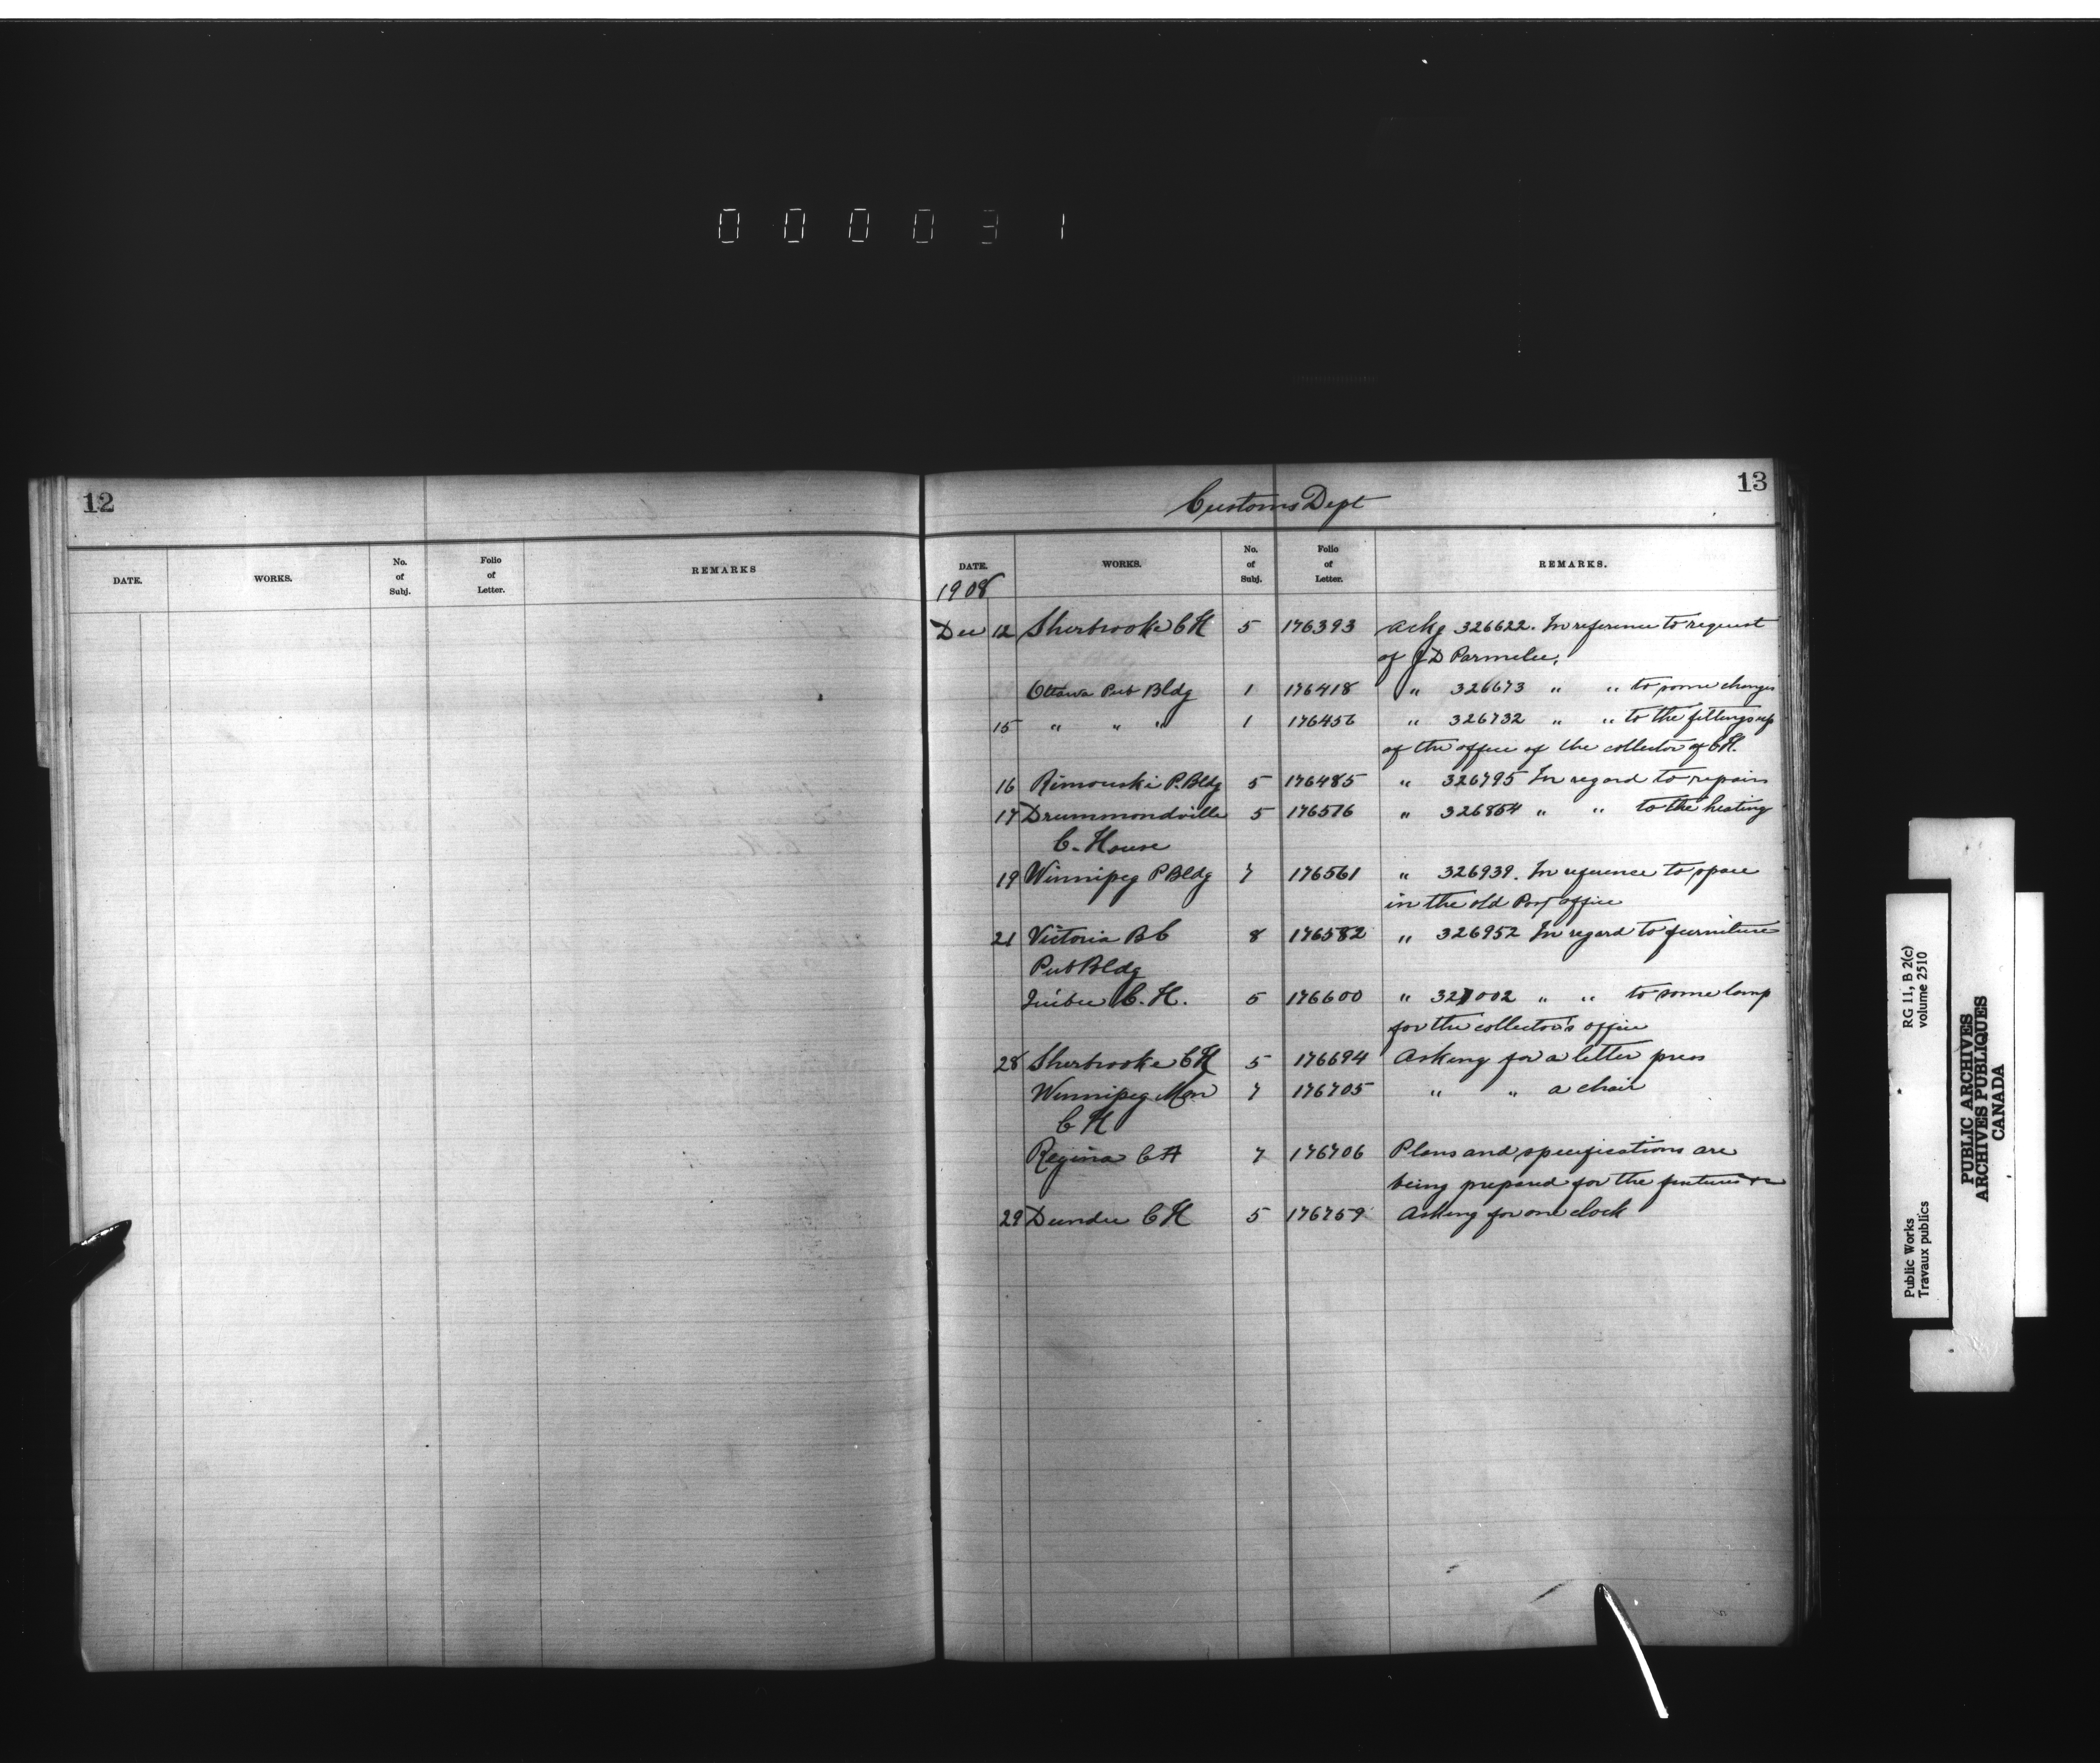 000031
12
DATE. WORKS. No. of Subj. Folio of Letter. REMARKS
13
Customs Dept
DATE. WORKS. No. of Subj. Folio of Letter. REMARKS.
1908
Dec 12 Sherbrooke C H 5 176393 Ackg 326622. In reference to request
of J D Parmelee,
Ottawa Pub Bldg 1 176418 " 326673 " " to some changes
15 " " " 1 176456 " 326732 " " to the fittings up
of the office of the collector of C H.
16 Rimouski P. Bldg 5 176485 " 326795 In regard to repairs
17 Drummondville 5 176516 " 326864 " " to the heating
C. House
19 Winnipeg P Bldg 7 176561 " 326939. In reference to space
in the old Post office
21 Victoria B C 8 176582 " 326952 In regard to furniture
Pub Bldg
Quebec C. H. 5 176600 " 327002 " " to some lamp
for the collector's office
28 Sherbrooke C H 5 176694 Asking for a letter press
Winnipeg Man 7 176705 " " a chair
C H
Regina C H 7 176706 Plans and specifications are
being prepared for the
29 Dundee C H 5 176759 Asking for one clock
Public Works
Travaux publics
RG 11, B 2(c)
volume 2510
PUBLIC ARCHIVES
ARCHIVES PUBLIQUES
CANADA